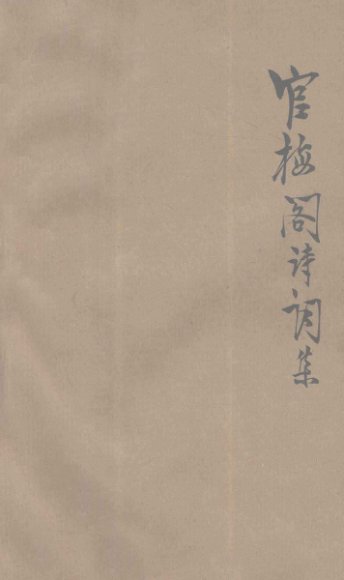 官梅阁诗词集